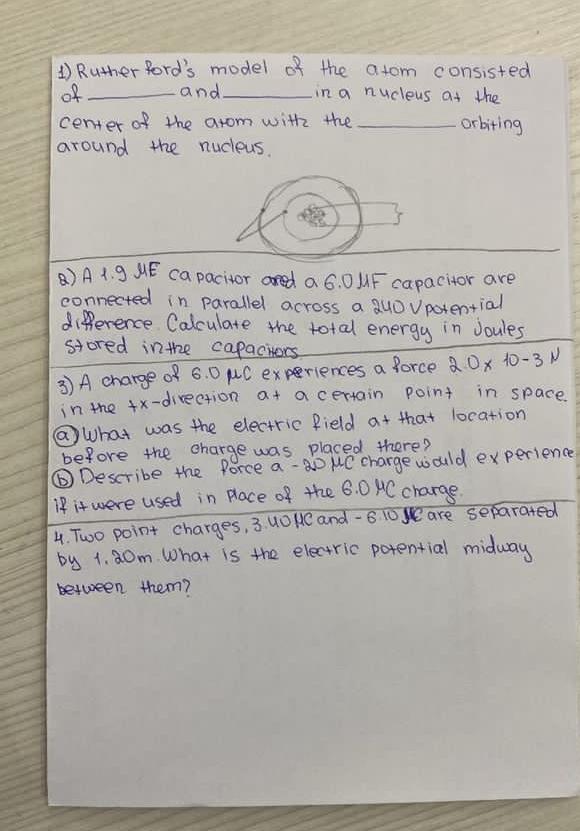 1) Rutherford's model of the atom consisted
of ________ and ________ in a nucleus at the
center of the atom with the ________ orbiting
around the nucleus.
2) A 1.9 MF capacitor and a 6.0 MF capacitor are
connected in parallel across a 240 V potential
difference. Calculate the total energy in Joules
stored in the capacitors
3) A charge of 6.0 μC experiences a force 2.0 x 10-3 N
in the +x-direction at a certain point in space.
a) What was the electric field at that location
before the charge was placed there?
b) Describe the force a -20 MC charge would experience
if it were used in place of the 6.0 MC charge.
4. Two point charges, 3.40 MC and -6.10 MC are separated
by 1.20m. What is the electric potential midway
between them?